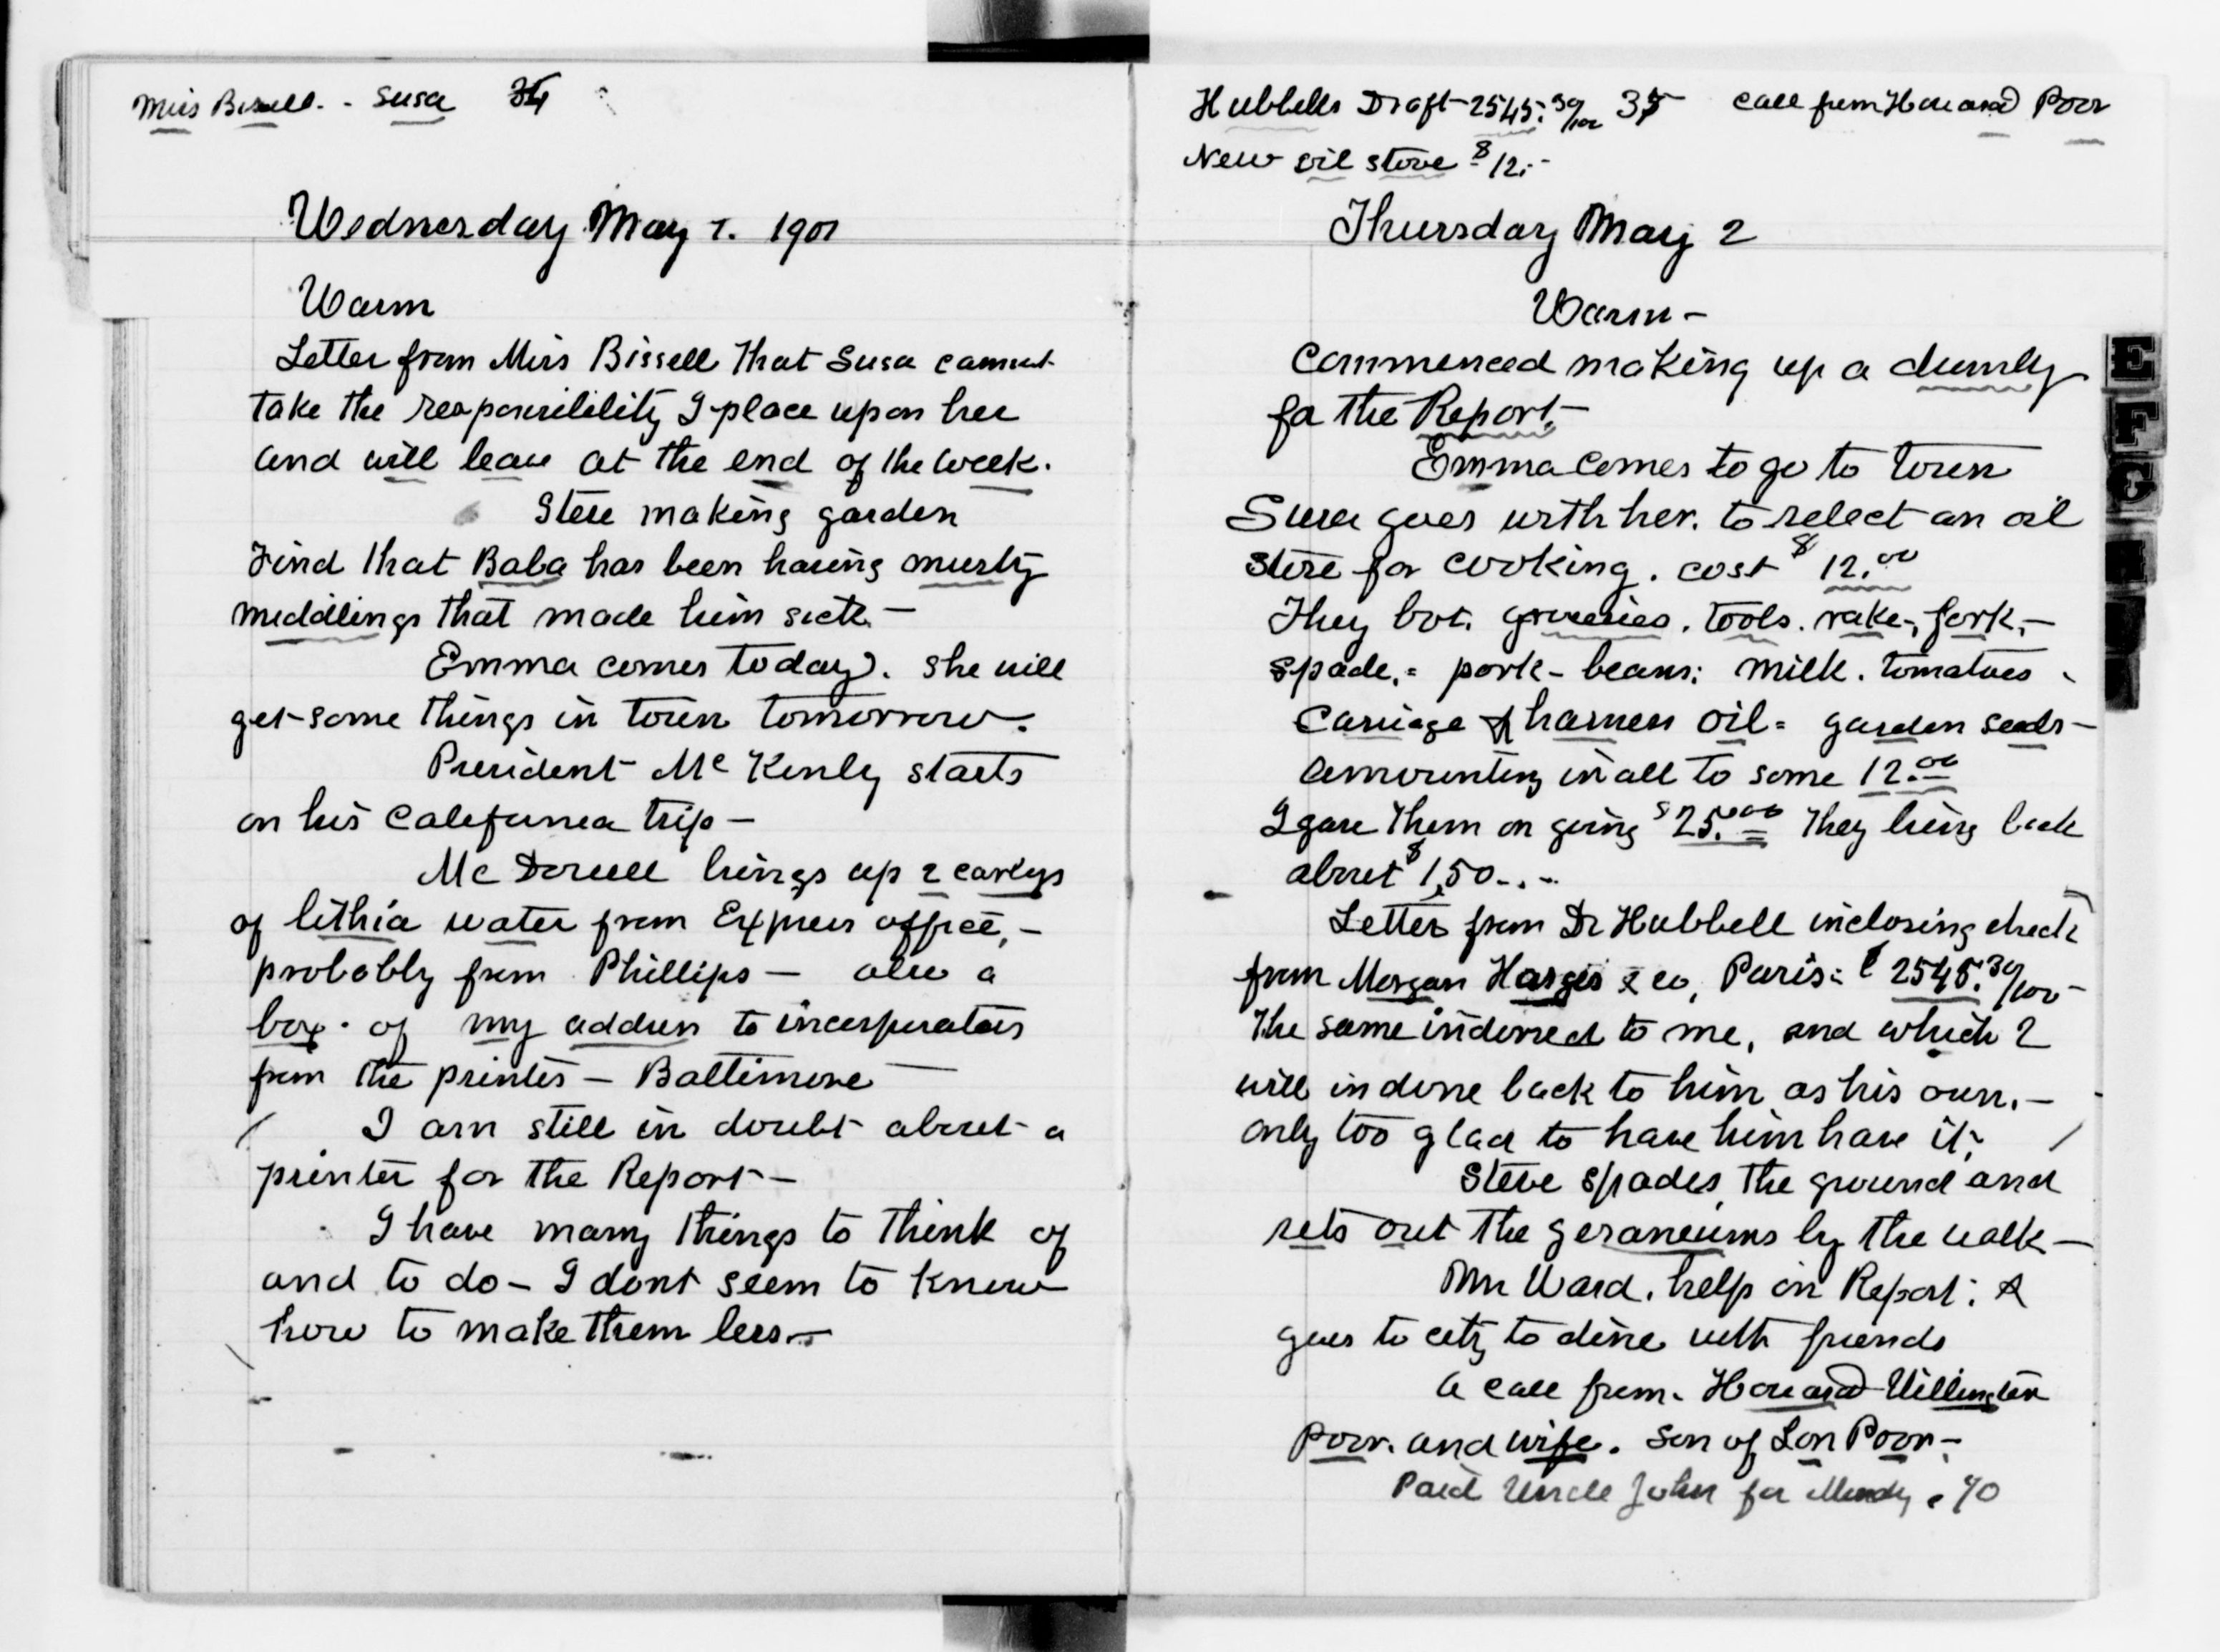 Miss Bissell. - Susa 34
Wednesday May 1. 1901
Warm
Letter from Miss Bissell that Susa cannot
take the responsibility I place upon her
and will leave at the end of the week.
Steve making garden
Find that Baba has been having musty
meddlings that made him sick -
Emma comes today. she will
get some things in town tomorrow.
President Mc Kinly starts
on his California trip -
Mc Dowell brings up 2 carboys
of lithia water from Express office, -
probably from Phillips - also a
box. of my address to incorporators
from the printers - Baltimore -
I am still in doubt about a
printer for the Report -
I have many things to think of
and to do - I dont seem to know
how to make them less. -
Hubbells Draft - 2545. 39/100 35 call from Howard Poor
New oil stove $12. -
Thursday May 2
Warm -
Commenced making up a dumly
for the Report. -
Emma comes to go to town
Susa goes with her. to select an oil
stove for cooking. cost $12.00
They bot. groceries. tools. rake -, fork, -
spade, = pork - beans; milk. tomatoes
Carriage & harness oil = garden seeds -
amounting in all to some 12.00
I gave them on going $25.00 They bring back
about $1,50 - . -
Letter from Dr Hubbell inclosing check
from Morgan Harges & co, Paris = 2545. 39/100 -
the same indorsed to me, and which I
will indorse back to him as his own. -
only too glad to have him have it;
Steve spades the ground and
sets out the geraneiums by the walk -
Mr Ward. help on Report: &
goes to city to dine with friends
a call from. Howard Willington
Poor. and wife. son of Lon Poor -
Paid Uncle John for Mandy . 40
E
F
G
H